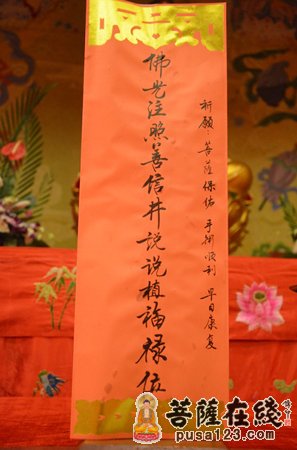 佛光注照善信井说说植福禄位
祈愿:菩萨保佑 手术顺利 早日康复
菩薩在綫
pusa123.com